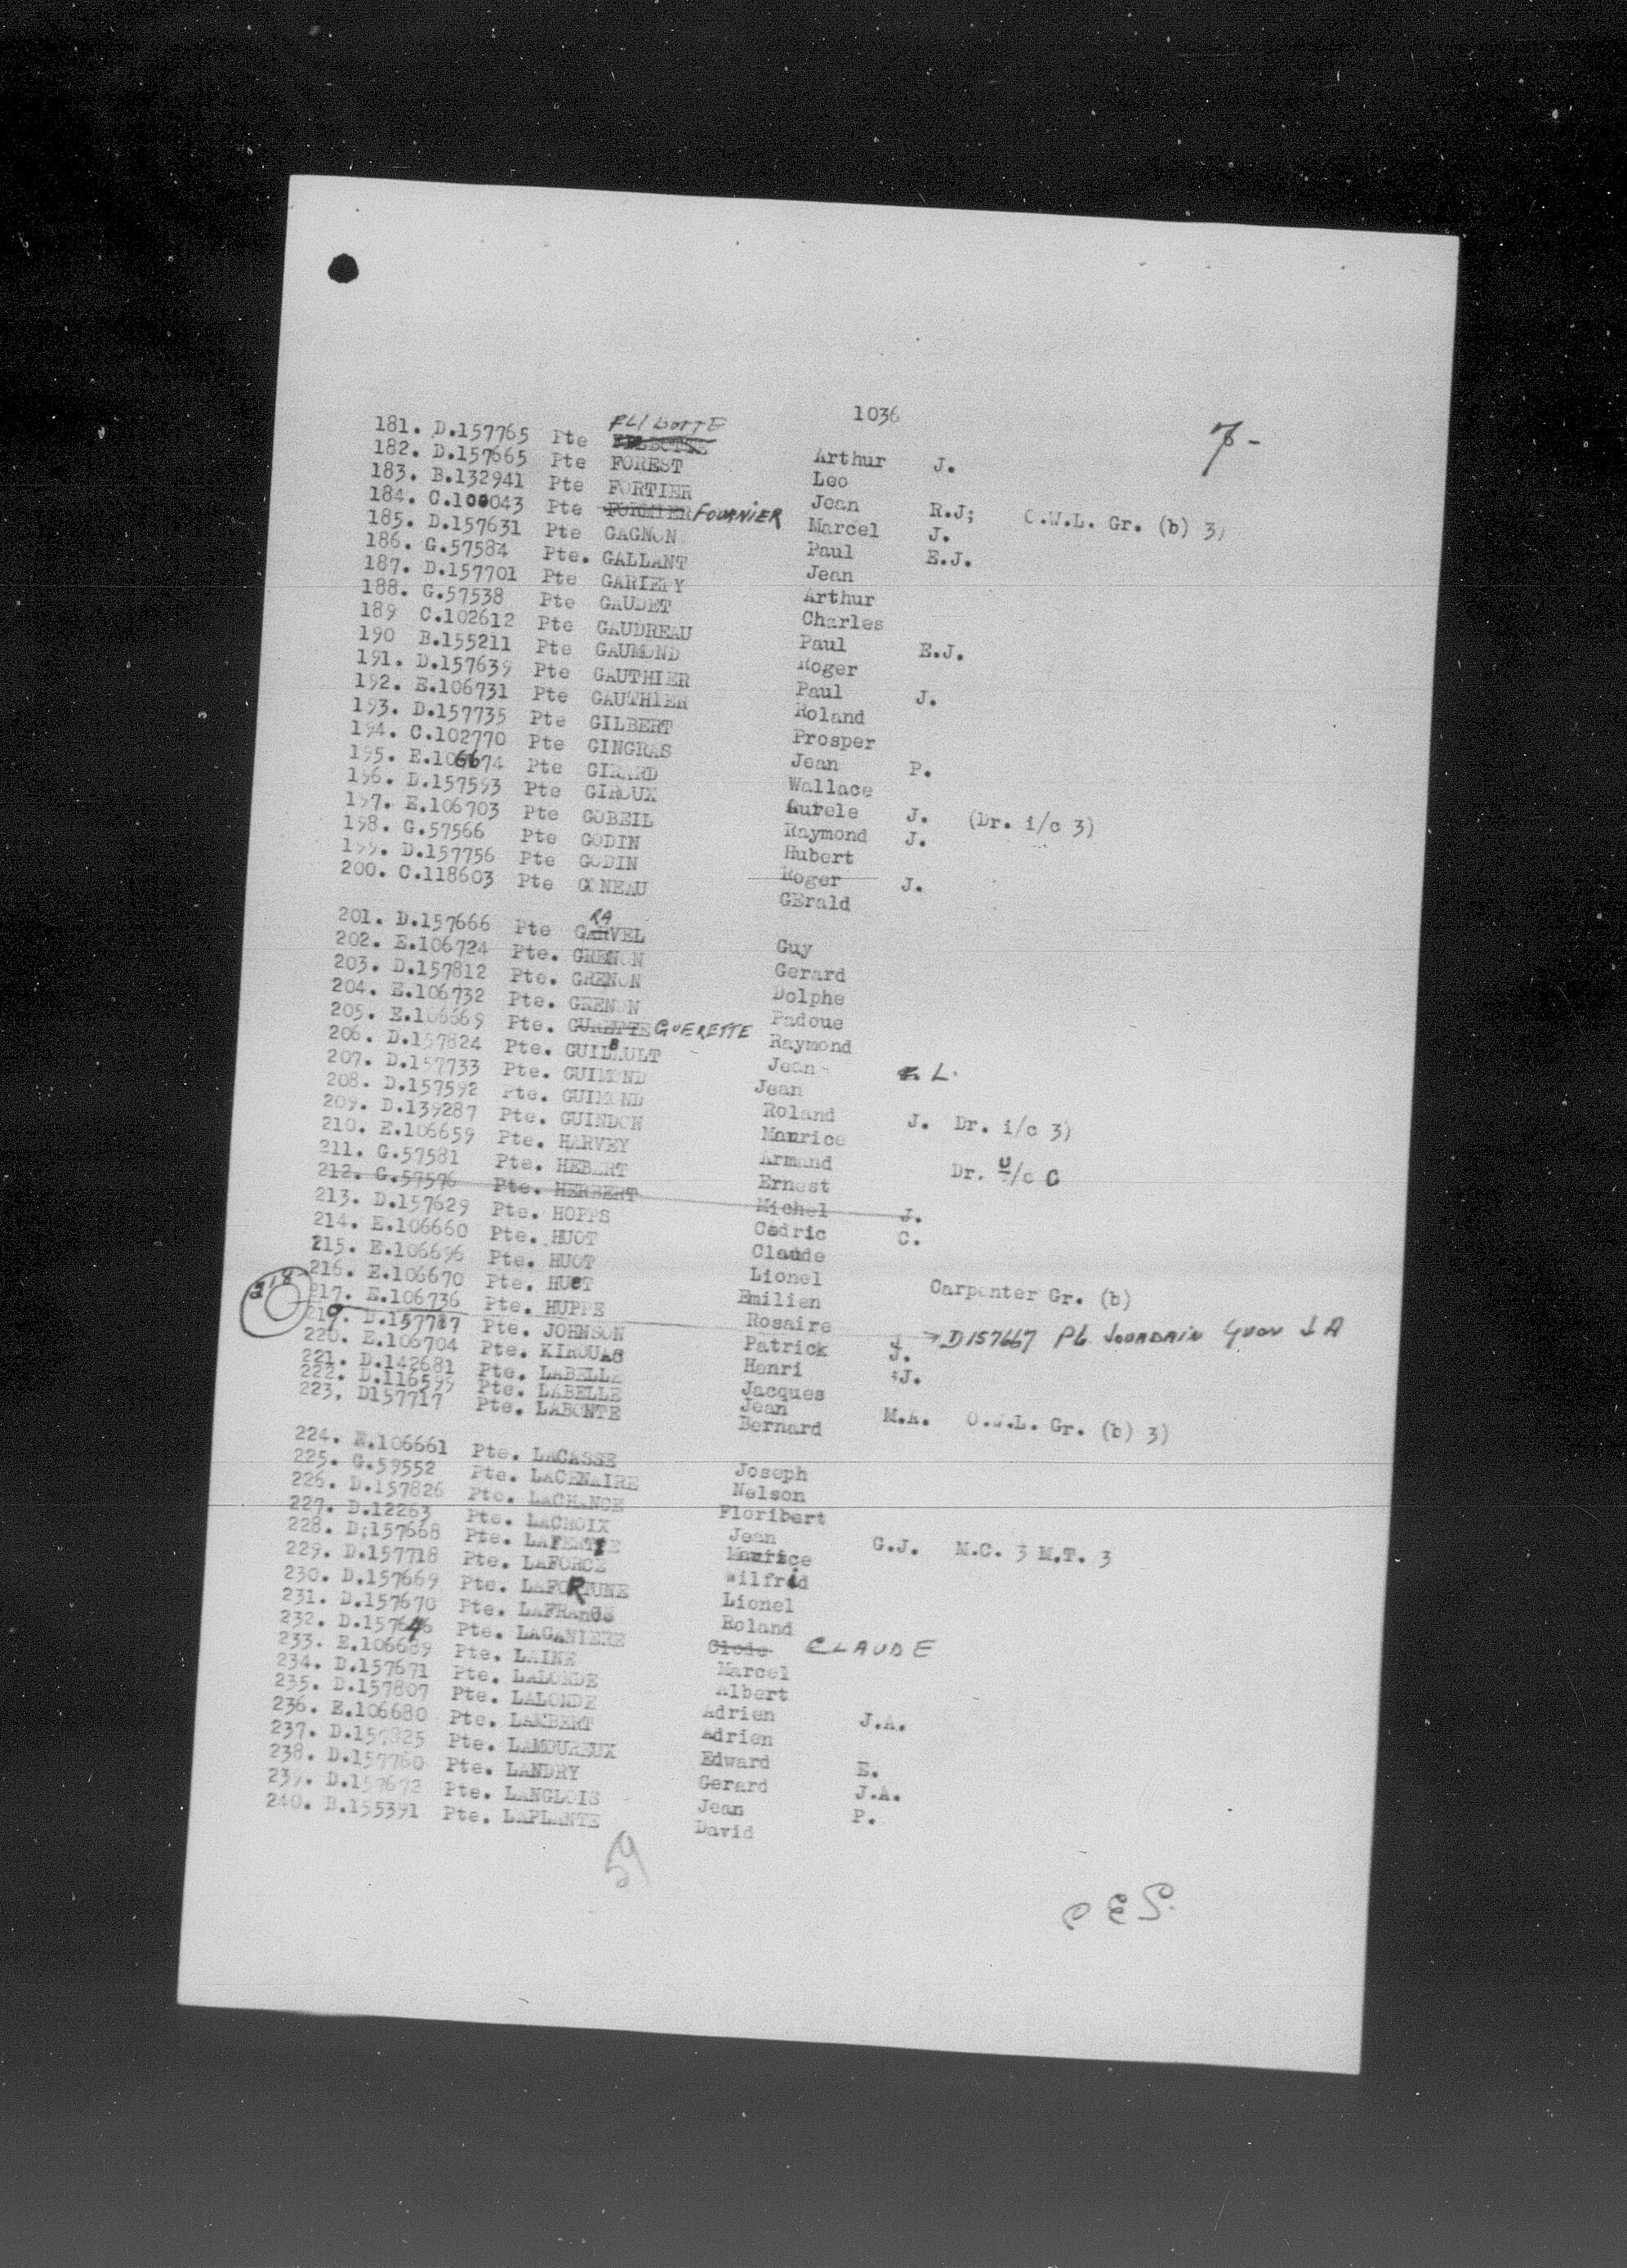 1036
7-
181. D.157765 Pte FLIBOTTE Arthur J.
182. D.157665 Pte FOREST Leo
183. B.132941 Pte FORTIER Jean R.J; O.W.L. Gr. (b) 3)
184. C.100043 Pte FORMIER FOURNIER Marcel J.
185. D.157631 Pte GAGNON Paul E.J.
186. G.57584 Pte. GALLANT Jean
187. D.157701 Pte GARIEPY Arthur
188. G.57538 Pte GAUDET Charles
189 C.102612 Pte GAUDREAU Paul E.J.
190 B.155211 Pte GAUMOND Roger
191. D.157639 Pte GAUTHIER Paul J.
192. E.106731 Pte GAUTHIER Roland
193. D.157735 Pte GILBERT Prosper
194. C.102770 Pte GINGRAS Jean P.
195. E.106674 Pte GIRARD Wallace
196. D.157593 Pte GIROUX Aurele J. (Dr. i/c 3)
197. E.106703 Pte GOBEIL Raymond J.
198. G.57566 Pte GODIN Hubert
199. D.157756 Pte GODIN Roger J.
200. C.118603 Pte GONEAU GErald
201. D.157666 Pte GRAVEL Guy
202. E.106724 Pte. GRENON Gerard
203. D.157812 Pte. GRENON Dolphe
204. E.106732 Pte. GRENON Padoue
205. E.106669 Pte. GURETTE GUERETTE Raymond
206. D.157824 Pte. GUILBAULT Jean L.
207. D.157733 Pte. GUIMOND Jean
208. D.157592 Pte. GUIMOND Roland J. Dr. i/c 3)
209. D.139287 Pte. GUINDON Maurice
210. E.106659 Pte. HARVEY Armand Dr. U/c C
211. G.57581 Pte. HEBERT Ernest
212. G.57576 Pte. HERBERT Michel J.
213. D.157629 Pte. HOPPS Cedric C.
214. E.106660 Pte. HUOT Claude
215. E.106696 Pte. HUOT Lionel Carpenter Gr. (b)
216. E.106670 Pte. HUOT Emilien
217. E.106736 Pte. HUPPE Rosaire
218 → D157667 Pt. JOURDAIN Yvon J A
219. D.157787 Pte. JOHNSON Patrick J.
220. E.106704 Pte. KIROUAC Henri J.
221. D.142681 Pte. LABELLE Jacques
222. D.116599 Pte. LABELLE Jean M.A. O.W.L. Gr. (b) 3)
223. D157717 Pte. LABONTE Bernard
224. E.106661 Pte. LACASSE Joseph
225. G.59552 Pte. LACENAIRE Nelson
226. D.157826 Pte. LACHANCE Floribert
227. D.12263 Pte. LACROIX Jean G.J. M.C. 3 M.T. 3
228. D:157668 Pte. LAFERTE Maurice
229. D.157718 Pte. LAFORCE Wilfrid
230. D.157669 Pte. LAFORTUNE Lionel
231. D.157670 Pte. LAFRANCE Roland
232. D.157646 Pte. LAGANIERE Clode CLAUDE
233. E.106689 Pte. LAINE Marcel
234. D.157671 Pte. LALONDE Albert
235. D.157807 Pte. LALONDE Adrien J.A.
236. E.106680 Pte. LAMBERT Adrien
237. D.157825 Pte. LAMOUREUX Edward E.
238. D.157760 Pte. LANDRY Gerard J.A.
239. D.157672 Pte. LANGLOIS Jean P.
240. B.155391 Pte. LAPLANTE David
59